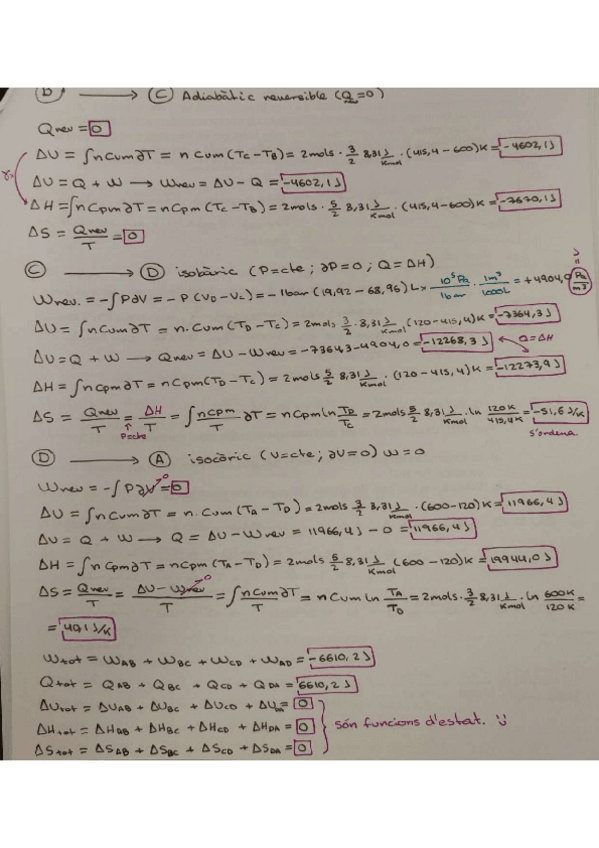 B → C Adiabàtic reversible (Q=0)
Qrev = 0
ΔU = ∫nCvm∂T = n Cvm (Tc-TB) = 2mols · 3/2 8,31 J/Kmol · (415,4 - 600)K = -4602,1 J
ΔU = Q + W → Wrev = ΔU - Q = -4602,1 J
ΔH = ∫nCpm∂T = nCpm (Tc-TB) = 2mols · 5/2 8,31 J/Kmol · (415,4-600)K = -7670,1 J
ΔS = Qrev/T = 0
C → D isobàric (P=cte; ∂P=0; Q=ΔH)
Wrev. = -∫P∂V = -P(VD-VC) = -1bar (19,92 - 68,96)L × 10⁵ Pa/1bar · 1m³/1000L = +4904,0 Pa/m³ = J
ΔU = ∫nCvm∂T = n·Cvm (TD-Tc) = 2mols 3/2 · 8,31 J/Kmol (120-415,4)K = -7364,3 J
ΔU = Q + W → Qrev = ΔU - Wrev = -7364,3-4904,0 = -12268,3 J Q=ΔH
ΔH = ∫nCpm∂T = nCpm(TD-Tc) = 2mols 5/2 8,31 J/Kmol · (120-415,4)K = -12273,9 J
ΔS = Qrev/T = ΔH/T = ∫nCpm/T ∂T = nCpm ln TD/Tc = 2mols 5/2 8,31 J/Kmol · ln 120K/415,4K = -51,6 J/K
P=cte
s'ordena.
D → A isocòric (V=cte; ∂V=0) W=0
Wrev = -∫P∂V⁰ = 0
ΔU = ∫nCvm∂T = n·Cvm (TA-TD) = 2mols 3/2 8,31 J/Kmol · (600-120)K = 11966,4 J
ΔU = Q + W → Q = ΔU - Wrev = 11966,4 J - 0 = 11966,4 J
ΔH = ∫nCpm∂T = nCpm (TA-TD) = 2mols 5/2 8,31 J/Kmol (600-120)K = 19944,0 J
ΔS = Qrev/T = ΔU - Wrev⁰/T = ∫nCvm∂T/T = nCvm ln TA/TD = 2mols · 3/2 8,31 J/Kmol · ln 600K/120K =
= 40,1 J/K
Wtot = WAB + WBC + WCD + WAD = -6610,2 J
Qtot = QAB + QBC + QCD + QDA = 6610,2 J
ΔUtot = ΔUAB + ΔUBC + ΔUCD + ΔUDA = 0
ΔHtot = ΔHAB + ΔHBC + ΔHCD + ΔHDA = 0 són funcions d'estat.
ΔStot = ΔSAB + ΔSBC + ΔSCD + ΔSDA = 0